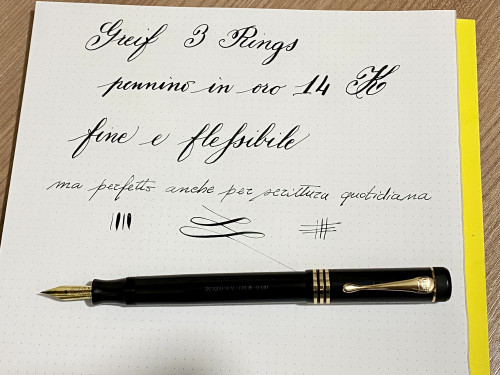 Greif 3 Rings
pennino in oro 14 K
fine e flessibile
ma perfetto anche per scrittura quotidiana